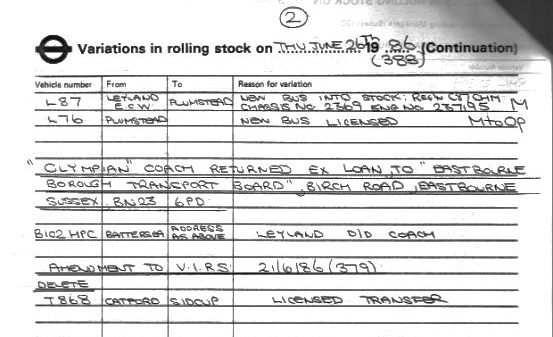 2
Variations in rolling stock on THU JUNE 26TH 1986 (Continuation)
(388)
Vehicle number From To Reason for variation
L87 LEYLAND E.C.W PLUMSTEAD NEW BUS INTO STOCK: REGN C87CHM
CHASSIS NO. 2369 ENG NO. 237195 M
L76 PLUMSTEAD NEW BUS LICENSED M to OP
"OLYMPIAN" COACH RETURNED EX LOAN, TO "EASTBOURNE
BOROUGH TRANSPORT BOARD", BIRCH ROAD, EASTBOURNE
SUSSEX. BN23 6PD.
B102 HPC BATTERSEA ADDRESS AS ABOVE LEYLAND D/D COACH
AMENDMENT TO V.I.R.S 21/6/86 (379)
DELETE
T868 CATFORD SIDCUP LICENSED TRANSFER